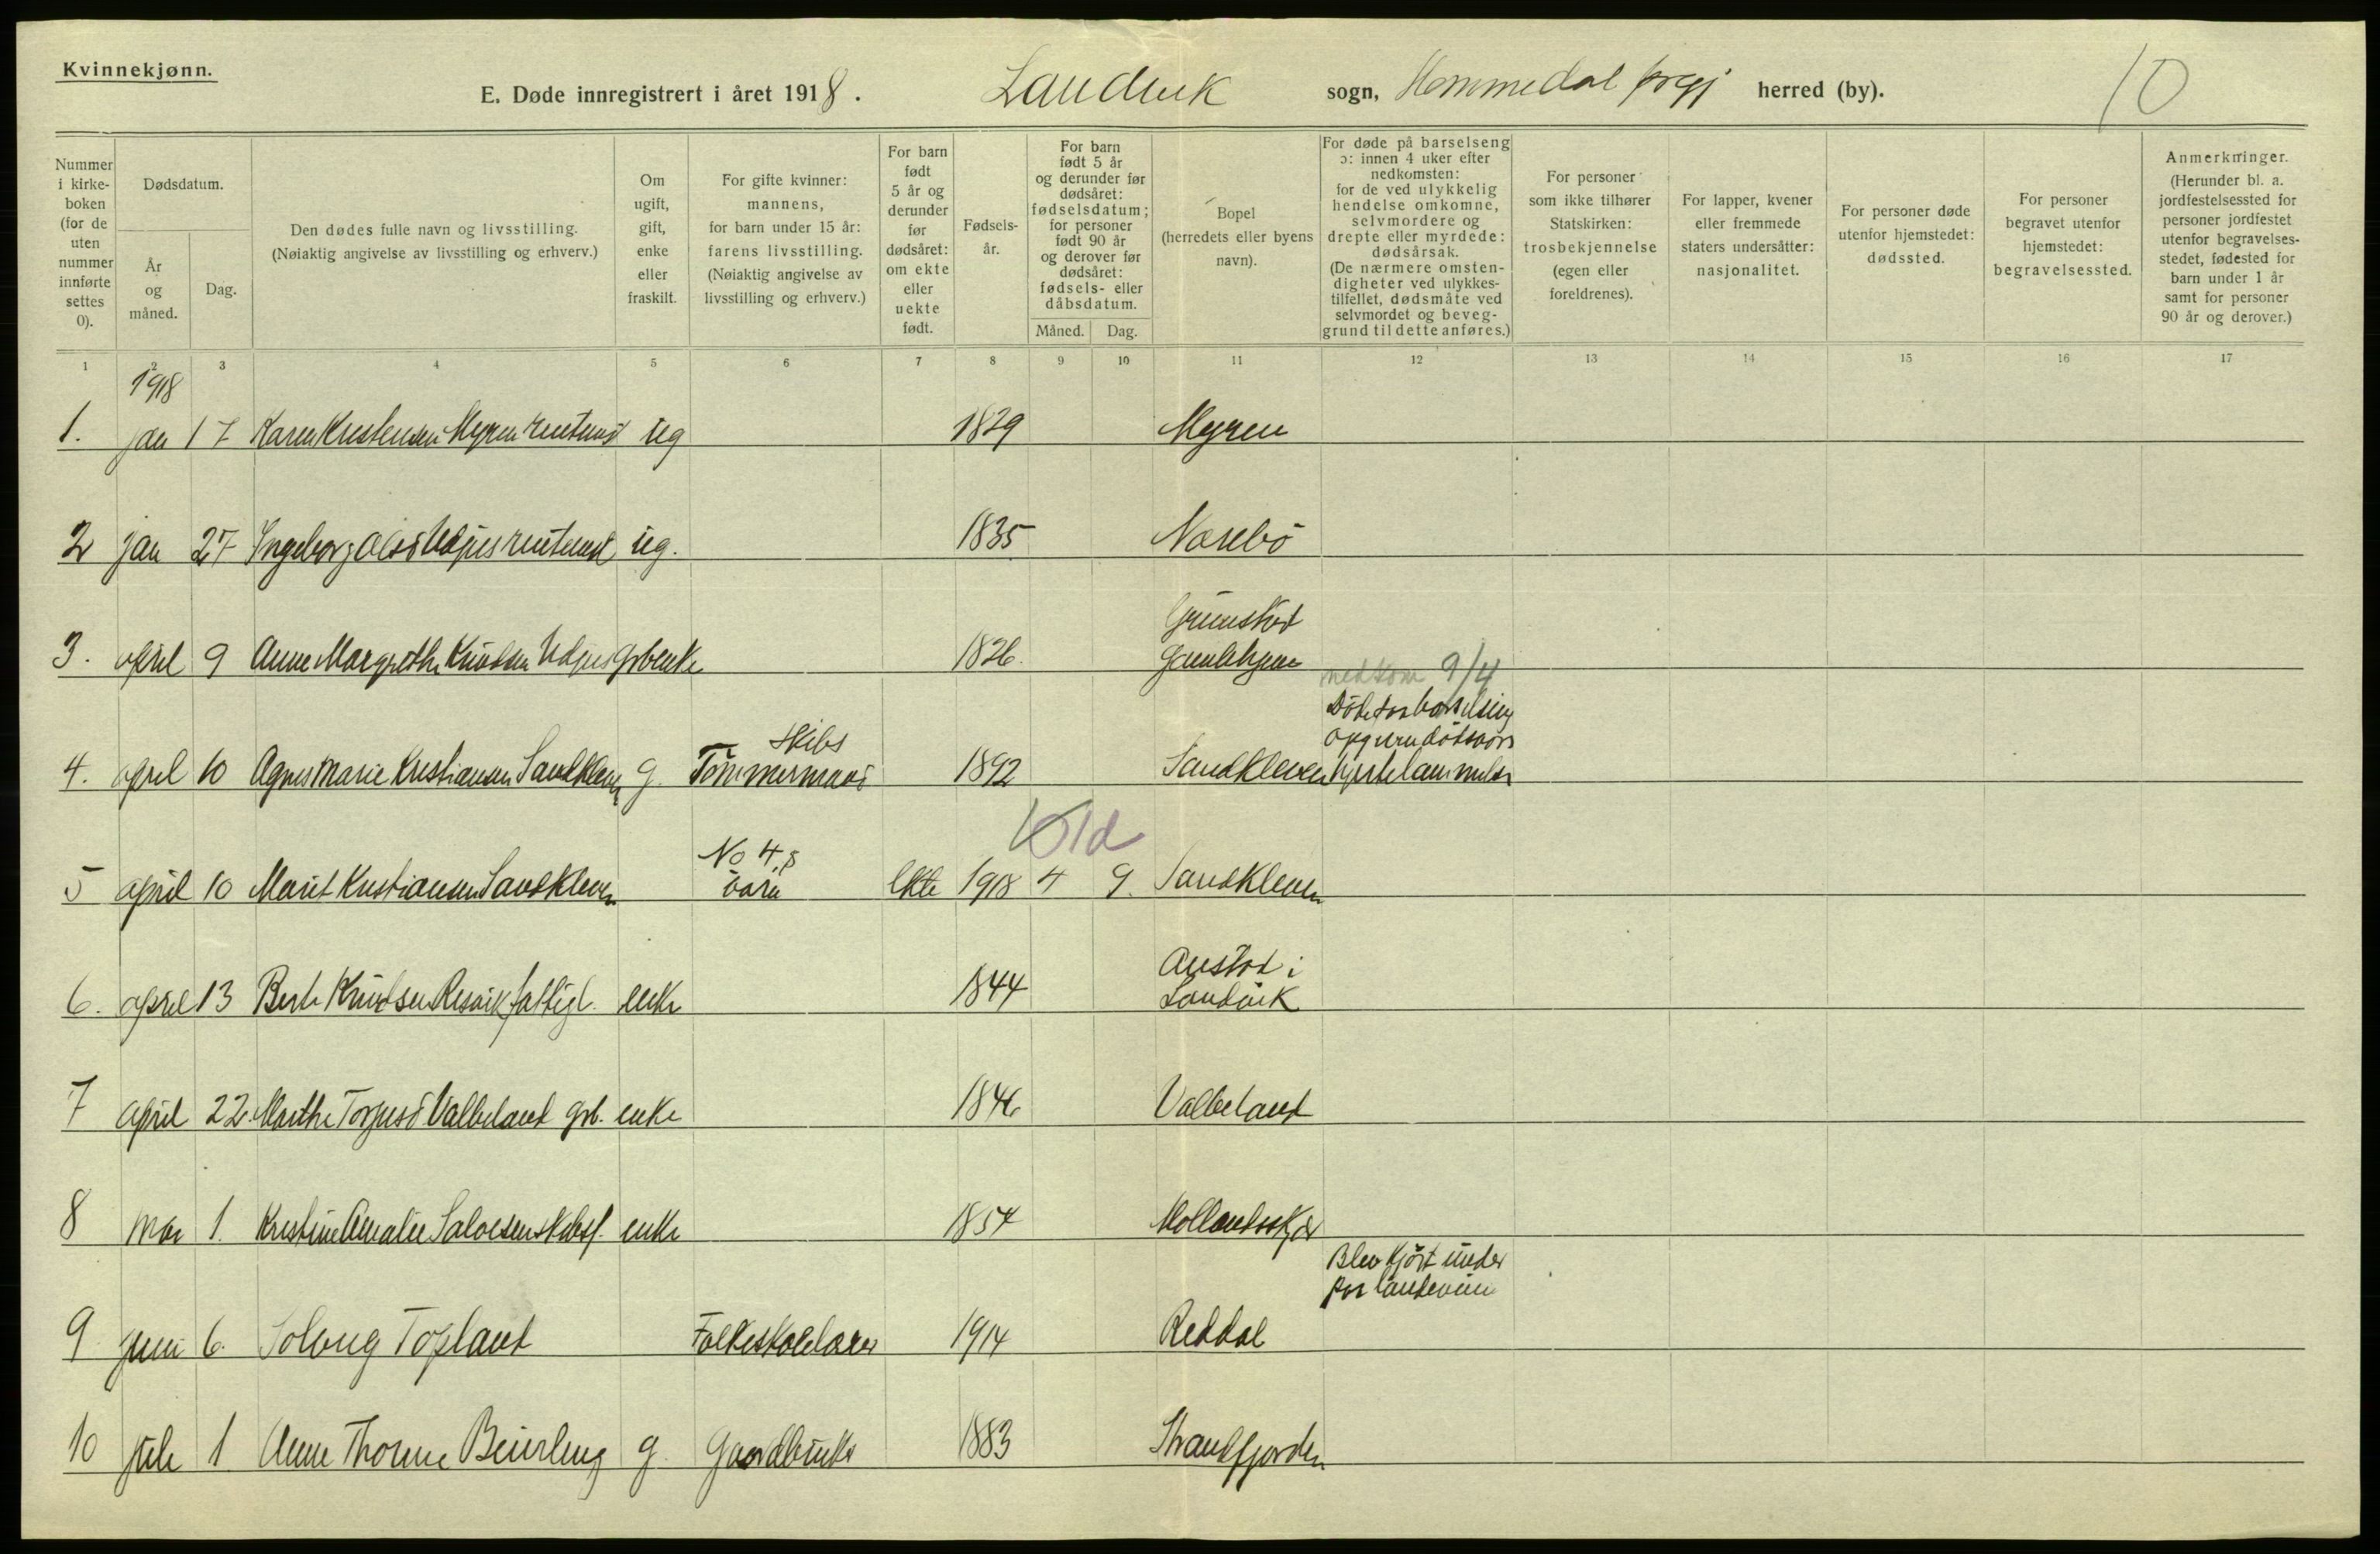 Kvinnekjønn.
E. Døde innregistrert i året 1918. Landvik sogn, Hommedal prgj herred (by). 10
Nummer i kirkeboken (for de uten nummer innførte settes 0).
Dødsdatum.
År og måned.
Dag.
Den dødes fulle navn og livsstilling.
(Nøiaktig angivelse av livsstilling og erhverv.)
Om ugift, gift, enke eller fraskilt.
For gifte kvinner: mannens, for barn under 15 år: farens livsstilling. (Nøiaktig angivelse av livsstilling og erhverv.)
For barn født 5 år og derunder før dødsåret: om ekte eller uekte født.
Fødselsår.
For barn født 5 år og derunder før dødsåret: fødselsdatum; for personer født 90 år og derover før dødsåret: fødsels- eller dåbsdatum.
Måned. Dag.
Bopel (herredets eller byens navn).
For døde på barselseng ɔ: innen 4 uker efter nedkomsten: for de ved ulykkelig hendelse omkomne, selvmordere og drepte eller myrdede: dødsårsak. (De nærmere omstendigheter ved ulykkestilfellet, dødsmåte ved selvmordet og beveggrund til dette anføres.)
For personer som ikke tilhører Statskirken: trosbekjennelse (egen eller foreldrenes).
For lapper, kvener eller fremmede staters undersåtter: nasjonalitet.
For personer døde utenfor hjemstedet: dødssted.
For personer begravet utenfor hjemstedet: begravelsessted.
Anmerkninger. (Herunder bl. a. jordfestelsessted for personer jordfestet utenfor begravelsesstedet, fødested for barn under 1 år samt for personer 90 år og derover.)
1 2 3 4 5 6 7 8 9 10 11 12 13 14 15 16 17
1918
1. jan 17 Karen Kristensen Myren ug 1829 Myren
2 jan 27 Ingeborg ug. 1835 Næsebö
Grimstad
3. april 9 Anne Margrethe Knudsen enke 1826.
nedkom 9/4
Döde paa barselseng
Skibs
4. april 10 Agnes Marie Kristiansen Sandkleven g. Tömmermand 1892 Sandkleven hjertelammelse
Kold
No 4,s
5 april 10 Marit Kristiansen Sandkleven barn Ekte 1918 4 9. Sandkleven
Austad i
6. april 13 Berte Knudsen Resvik fattigl. enke 1844 Landvik
7 april 22. Marthe Torjusd Valbeland grb. enke 1846 Valbeland
8 mai 1. Kristine Amalie Salvesen enke 1854 Mollandsskjær
Blev kjört under
paa landeveien
9. juni 6. Solveig Topland Folkeskolelærer 1914 Reddal
10 juli 1. Anne Thorine g. Gaardbruker 1883 Strandfjorden